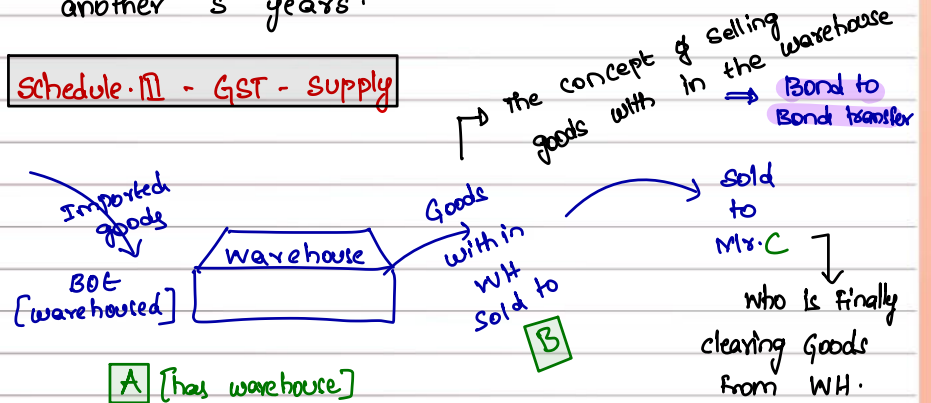 another 5 years.
Schedule.III - GST - Supply
The concept of selling
goods with in the warehouse
⇒ Bond to
Bond transfer
Imported
goods
BOE
[warehoused]
Warehouse
Goods
with in
WH
sold to
B
Sold
to
Mr.C
who is finally
clearing Goods
from WH.
A [has warehouse]